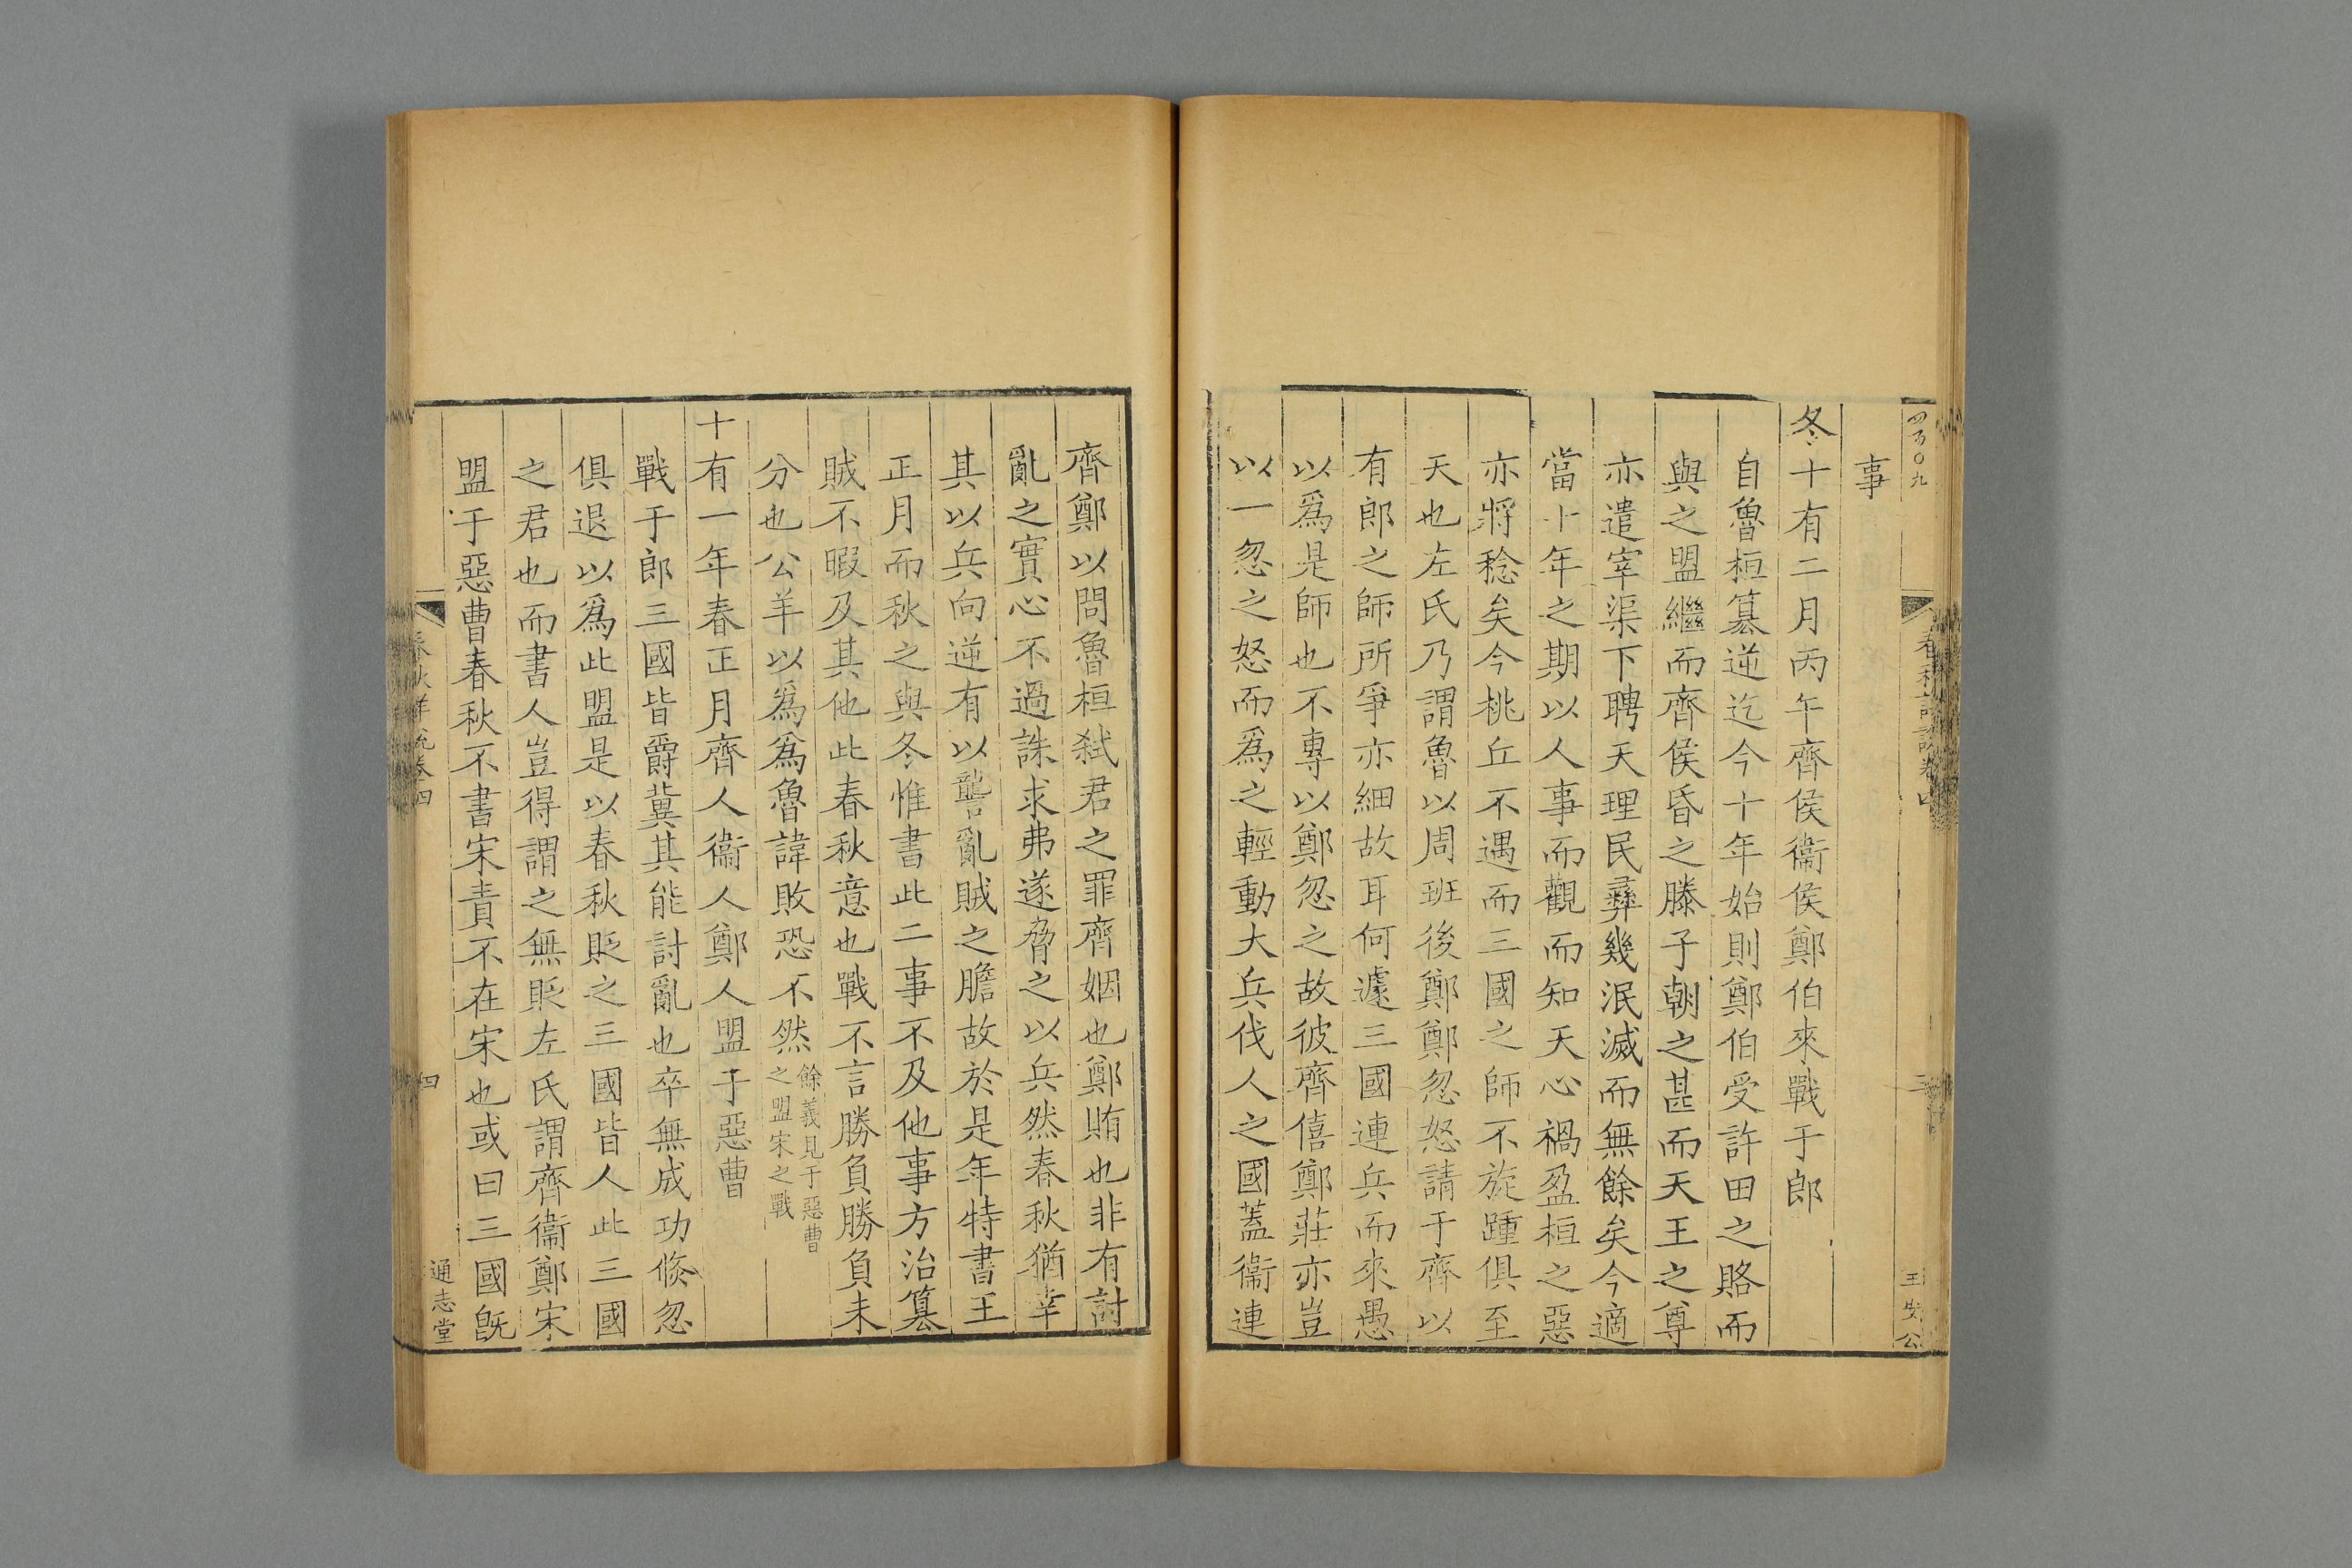 四百〇九
王公
事
冬十有二月丙午齊侯衞侯鄭伯來戰于郎
自魯桓簒逆迄今十年始則鄭伯受許田之賂而
與之盟繼而齊侯昏之滕子朝之甚而天王之尊
亦遣宰渠下聘天理民彞幾泯滅而無餘矣今適
當十年之期以人事而觀而知天心禍盈桓之惡
亦將稔矣今桃丘不遇而三國之師不旋踵俱至
天也左氏乃謂魯以周班後鄭鄭忽怒請于齊以
有郎之師所爭亦細故耳何遽三國連兵而來愚
以爲是師也不專以鄭忽之故彼齊僖鄭莊亦豈
以一忽之怒而爲之輕動大兵伐人之國蓋衞連
齊鄭以問魯桓弑君之罪齊姻也鄭賄也非有討
亂之實心不過誅求弗遂脅之以兵然春秋猶幸
其以兵向逆有以讋亂賊之膽故於是年特書王
正月而秋之與冬惟書此二事不及他事方治簒
賊不暇及其他此春秋意也戰不言勝負勝負未
分也公羊以爲爲魯諱敗恐不然餘義見于惡曹
之盟宋之戰
十有一年春正月齊人衞人鄭人盟于惡曹
戰于郎三國皆爵冀其能討亂也卒無成功倐忽
俱退以爲此盟是以春秋貶之三國皆人此三國
之君也而書人豈得謂之無貶左氏謂齊衞鄭宋
盟于惡曹春秋不書宋責不在宋也或曰三國旣
春秋詳說卷四
四
通志堂